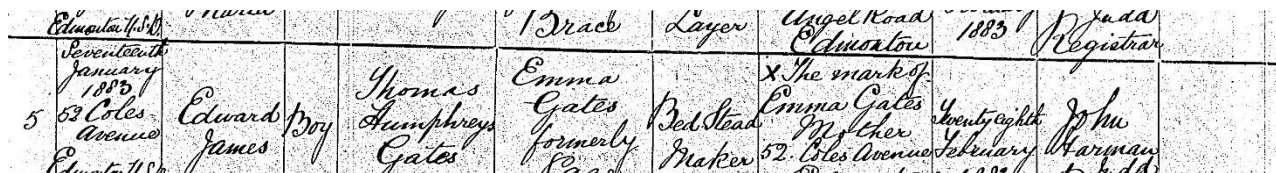 Edmonton U.S.D. Brace Layer Angel Road 1883 Judd
Edmonton Registrar
Seventeenth
January
1883
5 52 Coles
Avenue
Edward
James
Boy
Thomas
Humphreys
Gates
Emma
Gates
formerly
Bed Stead
Maker
X The mark of
Emma Gates
Mother
52. Coles Avenue
Twenty eighth
February
John
Harman